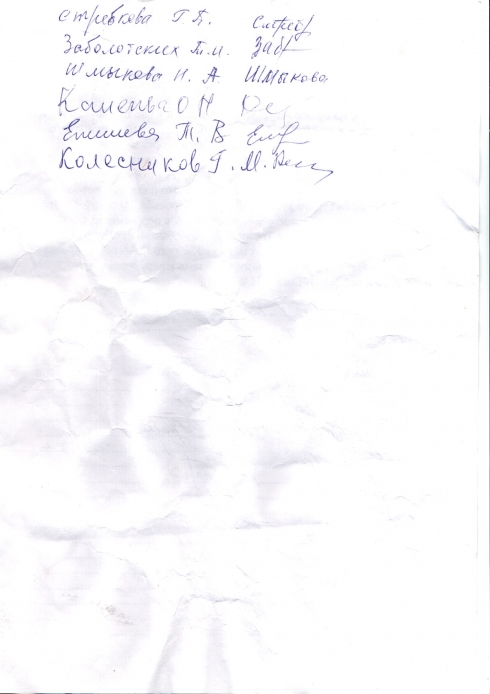 Стребкова Г.П. Стреб
Заболотских Т.И. Заб
Шмыкова Н. А. Шмыкова
О Н
Епишева Т. В Епи
Колесников Г. М.